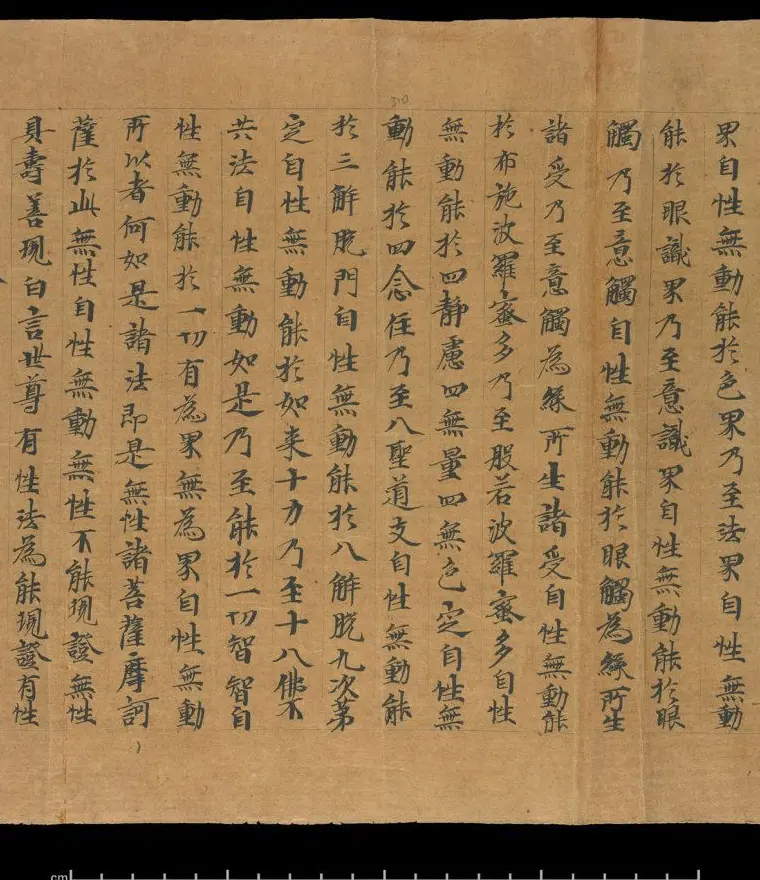 界自性無動能於色界乃至法界自性無動
能於眼識界乃至意識界自性無動能於眼
觸乃至意觸自性無動能於眼觸為緣所生
諸受乃至意觸為緣所生諸受自性無動能
於布施波羅蜜多乃至般若波羅蜜多自性
無動能於四靜慮四無量四無色定自性無
動能於四念住乃至八聖道支自性無動能
於三解脫門自性無動能於八解脫九次第
定自性無動能於如來十力乃至十八佛不
共法自性無動如是乃至能於一切智智自
性無動能於一切有為界無為界自性無動
所以者何如是諸法即是無性諸菩薩摩訶
薩於此無性自性無動無性不能現證無性
具壽善現白言世尊有性法為能現證有性
310